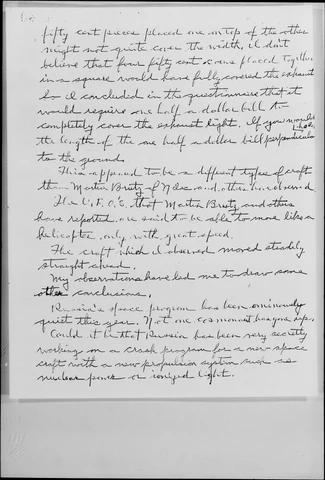 fifty cent pieces placed one on top of the other
might not quite cover the width. I don't
believe that four fifty cent coins placed together
in a square would have fully covered the exhaust
So I concluded in the questionnaire that it
would require one half a dollar bill to
completely cover the exhaust light. If you would hold
the length of the one half a dollar bill perpendicular
to the ground.
This appeared to be a different type of craft
than Martin and others have observed
The U.F.O.'s. that Martin and others
have reported are said to be able to move like a
helicopter, only with great speed.
The craft which I observed moved steadily
straight ahead.
My observations have led me to draw some
other conclusions.
Russia's space program has been ominously
quiet this year. Not one cosmonaut has gone up.
Could it be that Russia has been very secretly
working on a crash program for a new space
craft with a new propulsion system such as
nuclear power or ionized light.